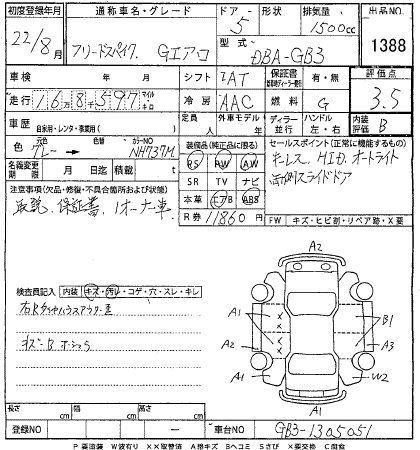 初度登録年月 通称車名・グレード ドアー 形状 排気量 出品NO
22/8月 フリードスパイク. Gエアロ 5 1500cc 1388
型式 DBA-GB3
車検 年 月 シフト IAT 保証書 有・無 評価点
走行 16万8千597 マイル キロ 冷房 AAC 燃料 G 3.5
車歴 自家用・レンタ・事業用( ) 定員 人 外車モデル 年 ディーラー 並行 ハンドル 左・右 内装評価 B
色 グレー → カラーNO NH737M 装備品(純正品に限る) セールスポイント(正常に機能するもの)
PS PW AW キーレス HID. オートライト
名義変更期限 月 日迄 積載 t SR TV ナビ 両側スライドドア
注意事項(欠品・修復・不具合箇所および状態) 本革 エアB ABS
取説. 保証書. 1オーナー車. R券 11860円 FW キズ・ヒビ割・リペア跡・X要
検査員記入 内装 キズ・汚レ・コゲ・穴・スレ・キレ
A2
A1 B1
A2 A3
A1 W2
A1
長さ cm 幅 cm 高さ cm
登録NO ー 車台NO GB3-1305051
P要塗装 W波有り ××取替済 A線キズ Bヘコミ Sさび ×要交換 C腐食